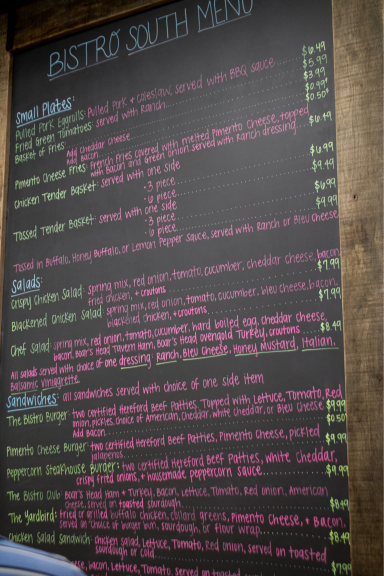 BISTRO SOUTH MENU
Small Plates:
Pulled Pork Eggrolls: Pulled Pork + coleslaw, served with BBQ sauce $6.49
Fried Green Tomatoes: served with Ranch... $5.99
Basket of Fries: $3.99
Add Cheddar Cheese $0.99
Add Bacon $0.50
Pimento Cheese Fries: French Fries covered with melted Pimento Cheese, topped
with Bacon and Green onion served with Ranch dressing $6.49
Chicken Tender Basket: served with one side
· 3 piece $6.99
· 6 piece $9.49
Tossed Tender Basket: served with one side
· 3 piece $6.99
· 6 piece $9.99
Tossed in Buffalo, Honey Buffalo, or Lemon Pepper Sauce, served with Ranch or Bleu Cheese
Salads:
Crispy Chicken Salad: spring mix, red onion, tomato, cucumber, cheddar cheese, bacon
fried chicken, + croutons $7.99
Blackened Chicken Salad: spring mix, red onion, tomato, cucumber, bleu cheese, bacon,
blackened chicken, + croutons $7.99
Chef Salad: spring mix, red onion, tomato, cucumber, hard boiled egg, cheddar cheese,
bacon, Boar's Head Tavern Ham, Boar's Head Ovengold Turkey, croutons $8.49
All salads served with choice of one dressing: Ranch, Bleu Cheese, Honey Mustard, Italian,
Balsamic Vinaigrette
Sandwiches: all sandwiches served with choice of one side item
The Bistro Burger: two certified Hereford Beef Patties, Topped with Lettuce, Tomato, Red
onion, pickles, choice of American, Cheddar, white Cheddar, or Bleu Cheese $9.99
Add Bacon $0.50
Pimento Cheese Burger: two certified Hereford Beef Patties, Pimento Cheese, pickled
jalapenos $9.99
Peppercorn Steakhouse Burger: two certified Hereford Beef Patties, white Cheddar,
crispy fried onions, + housemade peppercorn sauce $9.99
The Bistro Club: Boar's Head Ham + Turkey, Bacon, Lettuce, Tomato, Red onion, American
Cheese, served on toasted sourdough $8.49
The Yardbird: fried or grilled buffalo chicken, collard greens, Pimento Cheese, + Bacon,
served on choice of burger bun, sourdough, or flour wrap $8.49
Chicken Salad Sandwich: chicken salad, Lettuce, Tomato, Red onion, served on toasted
sourdough or cold $7.99
bacon, Lettuce, Tomato, served on toasted